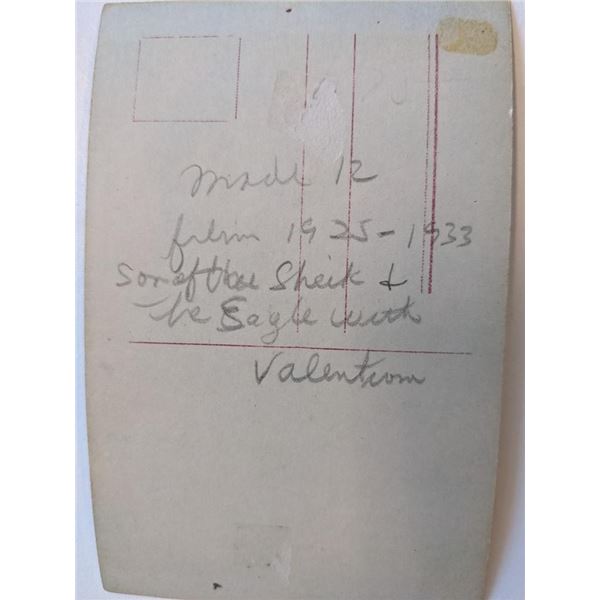 made 12
film 1925-1933
Son of the Sheik +
The Eagle with
Valentino